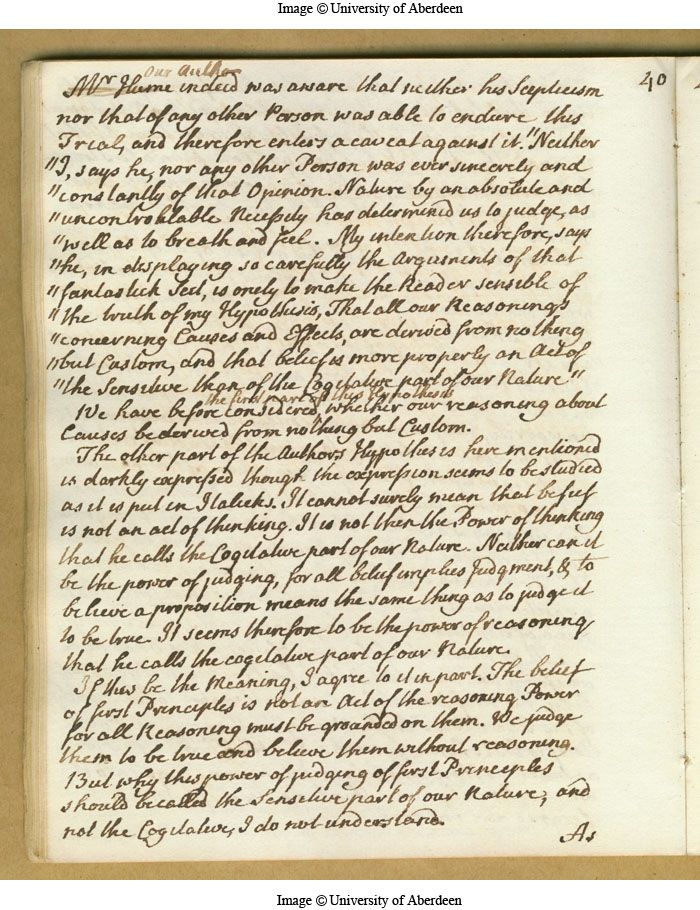 Image © University of Aberdeen
40
our Author
Mr Hume indeed was aware that neither his Scepticism
nor that of any other Person was able to endure this
Trial, and therefore enters a caveat against it. "Neither
"I, says he, nor any other Person was ever sincerely and
"constantly of that Opinion. Nature by an absolute and
"uncontroulable Necessity has determined us to judge, as
"well as to breath and feel. My intention therefore, says
"he, in displaying so carefully the Arguments of that
"fantastick Sect, is onely to make the Reader sensible of
"the truth of my Hypothesis, That all our Reasonings
"concerning Causes and Effects, are derived from nothing
"but Custom, and that belief is more properly an Act of
"the Sensitive than of the Cogitative part of our Nature."
the first part of this Hypothesis
We have before considered, whether our reasoning about
Causes be derived from nothing but Custom.
The other part of the Authors Hypothesis here mentioned
is darkly expressed though the expression seems to be studied
as it is put in Italicks. It cannot surely mean that belief
is not an act of thinking. It is not then the Power of thinking
that he calls the Cogitative part of our Nature. Neither can it
be the power of judging, for all belief implies Judgment, & to
believe a proposition means the same thing as to judge it
to be true. It seems therefore to be the power of reasoning
that he calls the cogitative part of our Nature.
If this be the Meaning, I agree to it in part. The belief
of first Principles is not an Act of the reasoning Power
for all Reasoning must be grounded on them. We judge
them to be true and believe them without reasoning.
But why this power of judging of first Principles
should be called the Sensitive part of our Nature, and
not the Cogitative, I do not understand.
As
Image © University of Aberdeen